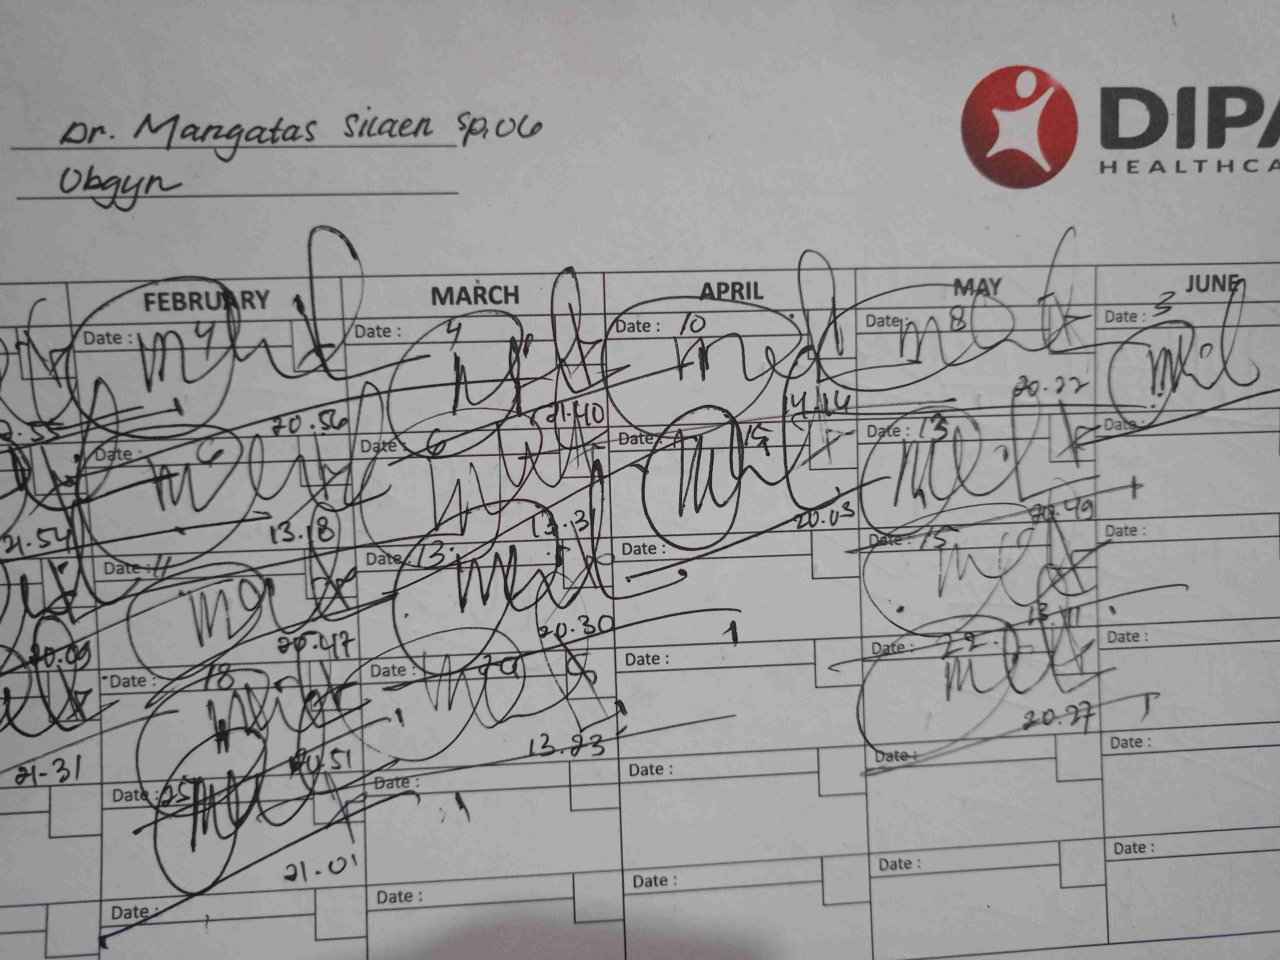 Dr. Mangatas Silaen Sp.OG
Obgyn
DIPA
HEALTHCA
FEBRUARY MARCH APRIL MAY JUNE
Date : 4 Date : 4 Date : 10 Date : 8 Date : 3
20.56 21.40 14.14 20.22
Date : 6 Date : 6 Date : 15 Date : 13 Date :
21.54 13.18 13.31 20.03 20.49
Date : 11 Date : 13 Date : Date : 15 Date :
20.09 20.47 20.30 13.11
Date : 18 Date : 20 Date : Date : 22 Date :
21-31 20.51 13.23 20.27
Date : 25 Date : Date : Date : Date :
21.01
Date : Date : Date : Date : Date :